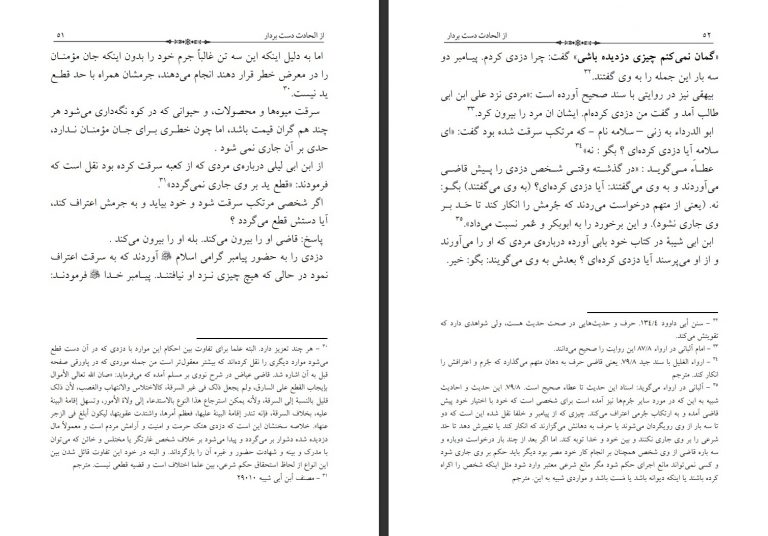 ۵۱
از الحادت دست بردار
اما به دلیل اینکه این سه تن غالباً جرم خود را بدون اینکه جان مؤمنان
را در معرض خطر قرار دهند انجام می‌دهند، جرمشان همراه با حد قطع
ید نیست.۳۰
سرقت میوه‌ها و محصولات، و حیوانی که در کوه نگه‌داری می‌شود هر
چند هم گران قیمت باشد، اما چون خطری برای جان مؤمنان ندارد،
حدی بر آن جاری نمی شود .
از ابن ابی لیلی درباره‌ی مردی که از کعبه سرقت کرده بود نقل است که
فرمودند: «قطع ید بر وی جاری نمی‌گردد»۳۱
اگر شخصی مرتکب سرقت شود و خود بیاید و به جرمش اعتراف کند،
آیا دستش قطع می‌گردد ؟
پاسخ: قاضی او را بیرون می‌کند. بله او را بیرون می‌کند .
دزدی را به حضور پیامبر گرامی اسلام ﷺ آوردند که به سرقت اعتراف
نمود در حالی که هیچ چیزی نزد او نیافتند. پیامبر خدا ﷺ فرمودند:
۳۰ - هر چند تعزیر دارد. البته علما برای تفاوت بین احکام این موارد با دزدی که در آن دست قطع
می‌شود موارد دیگری را نقل کرده‌اند که بیشتر معقول‌تر است من جمله موردی که در پاورقی صفحه
قبل به آن اشاره شد. قاضی عیاض در شرح نووی بر مسلم آمده که می‌فرماید: «صان الله تعالی الأموال
بإیجاب القطع علی السارق، ولم یجعل ذلک فی غیر السرقة، کالاختلاس والانتهاب والغصب، لأن ذلک
قلیل بالنسبة إلی السرقة، ولأنه یمکن استرجاع هذا النوع بالاستدعاء إلی ولاة الأمور، وتسهل إقامة البینة
علیه، بخلاف السرقة، فإنه تندر إقامة البینة علیها، فعظم أمرها، واشتدت عقوبتها، لیکون أبلغ فی الزجر
عنها». خلاصه سخنشان این است که دزدی هتک حرمت و امنیت و آرامش مردم است و معمولاً مال
دزدیده شده دشوار بر می‌گردد و پیدا می‌شود بر خلاف شخص غارتگر یا مختلس و خائن که می‌توان
با مدرک و بینه و شهادت حضور و غیره آن را بازگرداند. و البته در خود این تفاوت قائل شدن بین
این انواع از لحاظ استحقاق حکم شرعی، بین علما اختلاف است و قضیه قطعی نیست. مترجم
۳۱ - مصنف ابن أبی شیبه ۲۹۰۱۰
۵۲
از الحادت دست بردار
«گمان نمی‌کنم چیزی دزدیده باشی» گفت: چرا دزدی کردم. پیامبر دو
سه بار این جمله را به وی گفتند.۳۲
بیهقی نیز در روایتی با سند صحیح آورده است :«مردی نزد علی ابن ابی
طالب آمد و گفت من دزدی کرده‌ام. ایشان ان مرد را بیرون کرد.۳۳
ابو الدرداء به زنی – سلامه نام – که مرتکب سرقت شده بود گفت: «ای
سلامه آیا دزدی کرده‌ای ؟ بگو : نه»۳۴
عطاء می‌گوید : «در گذشته وقتی شخص دزدی را پیش قاضی
می‌آوردند و به وی می‌گفتند: آیا دزدی کرده‌ای؟ (به وی می‌گفتند) بگو:
نه. (یعنی از متهم درخواست می‌ردند که جُرمش را انکار کند تا حد بر
وی جاری نشود). و این برخورد را به ابوبکر و عُمر نسبت می‌داد».۳۵
ابن ابی شیبة در کتاب خود بابی آورده درباره‌ی مردی که او را می‌آورند
و از او می‌پرسند آیا دزدی کرده‌ای ؟ بعدش به وی می‌گویند: بگو: خیر.
۳۲ - سنن أبی داوود ۱۳۴/٤. حرف و حدیث‌هایی در صحت حدیث هست، ولی شواهدی دارد که
تقویتش می‌کند.
۳۳ - امام آلبانی در ارواء ۸۷/۸ این روایت را صحیح می‌دانند.
۳۴ - ارواء الغلیل با سند جید ۷۹/۸. یعنی قاضی حرف به دهان متهم می‌گذارد که جُرم و اعترافش را
انکار کند. مترجم
۳۵ - آلبانی در ارواء می‌گوید: اسناد این حدیث تا عطاء صحیح است. ۷۹/۸. این حدیث و احادیث
شبیه به این که در مورد سایر جُرم‌ها نیز آمده است برای شخصی است که خود با اختیار خود پیش
قاضی آمده و به ارتکاب جُرمی اعتراف می‌کند. چیزی که از پیامبر و خلفا نقل شده این است که دو
تا سه بار از وی رویگردان می‌شوند یا حرف به دهانش می‌گزارند که انکار کند یا تغییرش دهد تا حد
شرعی را بر وی جاری نکنند و بین خود و خدا توبه کند. اما اگر بعد از چند بار درخواست دوباره و
سه باره قاضی از وی شخص همچنان بر انجام کار خود مصر بود دیگر باید حکم بر وی جاری شود
و کسی نمی‌تواند مانع اجرای حکم شود مگر مانع شرعی معتبر وارد شود مثل اینکه شخص را اکراه
کرده باشند یا اینکه دیوانه باشد یا مَست باشد و مواردی شبیه به این. مترجم